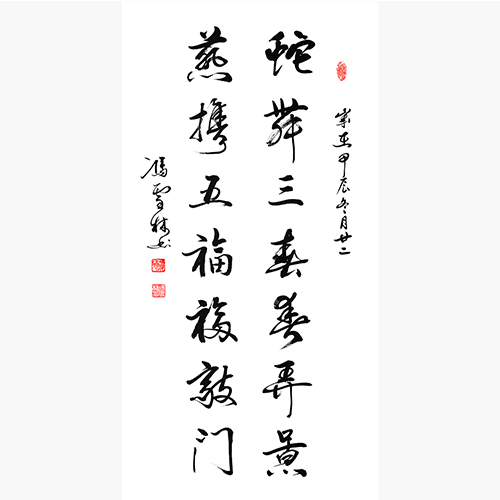 岁在甲辰冬月廿二
蛇舞三春春弄景
燕携五福福敲门
冯雪林书